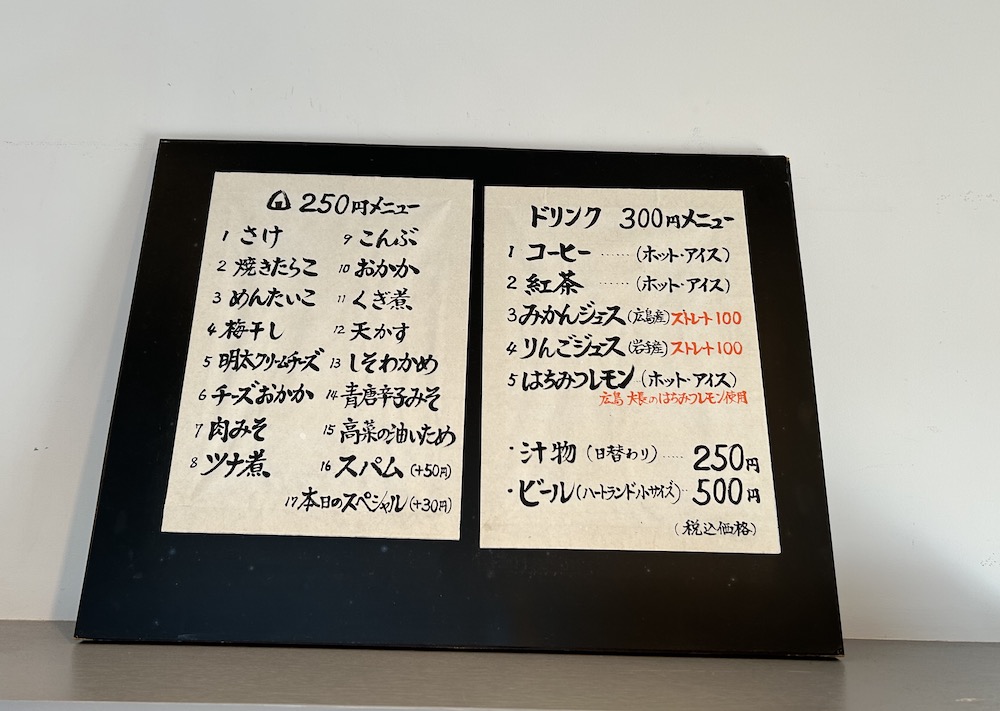 250円メニュー
1 さけ
2 焼きたらこ
3 めんたいこ
4 梅干し
5 明太クリームチーズ
6 チーズおかか
7 肉みそ
8 ツナ煮
9 こんぶ
10 おかか
11 くぎ煮
12 天かす
13 しそわかめ
14 青唐辛子みそ
15 高菜の油いため
16 スパム(+50円)
17 本日のスペシャル(+30円)
ドリンク 300円メニュー
1 コーヒー ……(ホット・アイス)
2 紅茶 ……(ホット・アイス)
3 みかんジュース(広島産)ストレート100
4 りんごジュース(岩手産)ストレート100
5 はちみつレモン…(ホット・アイス)
広島 大長のはちみつレモン使用
・汁物(日替わり)…… 250円
・ビール(ハートランド小サイズ)… 500円
(税込価格)